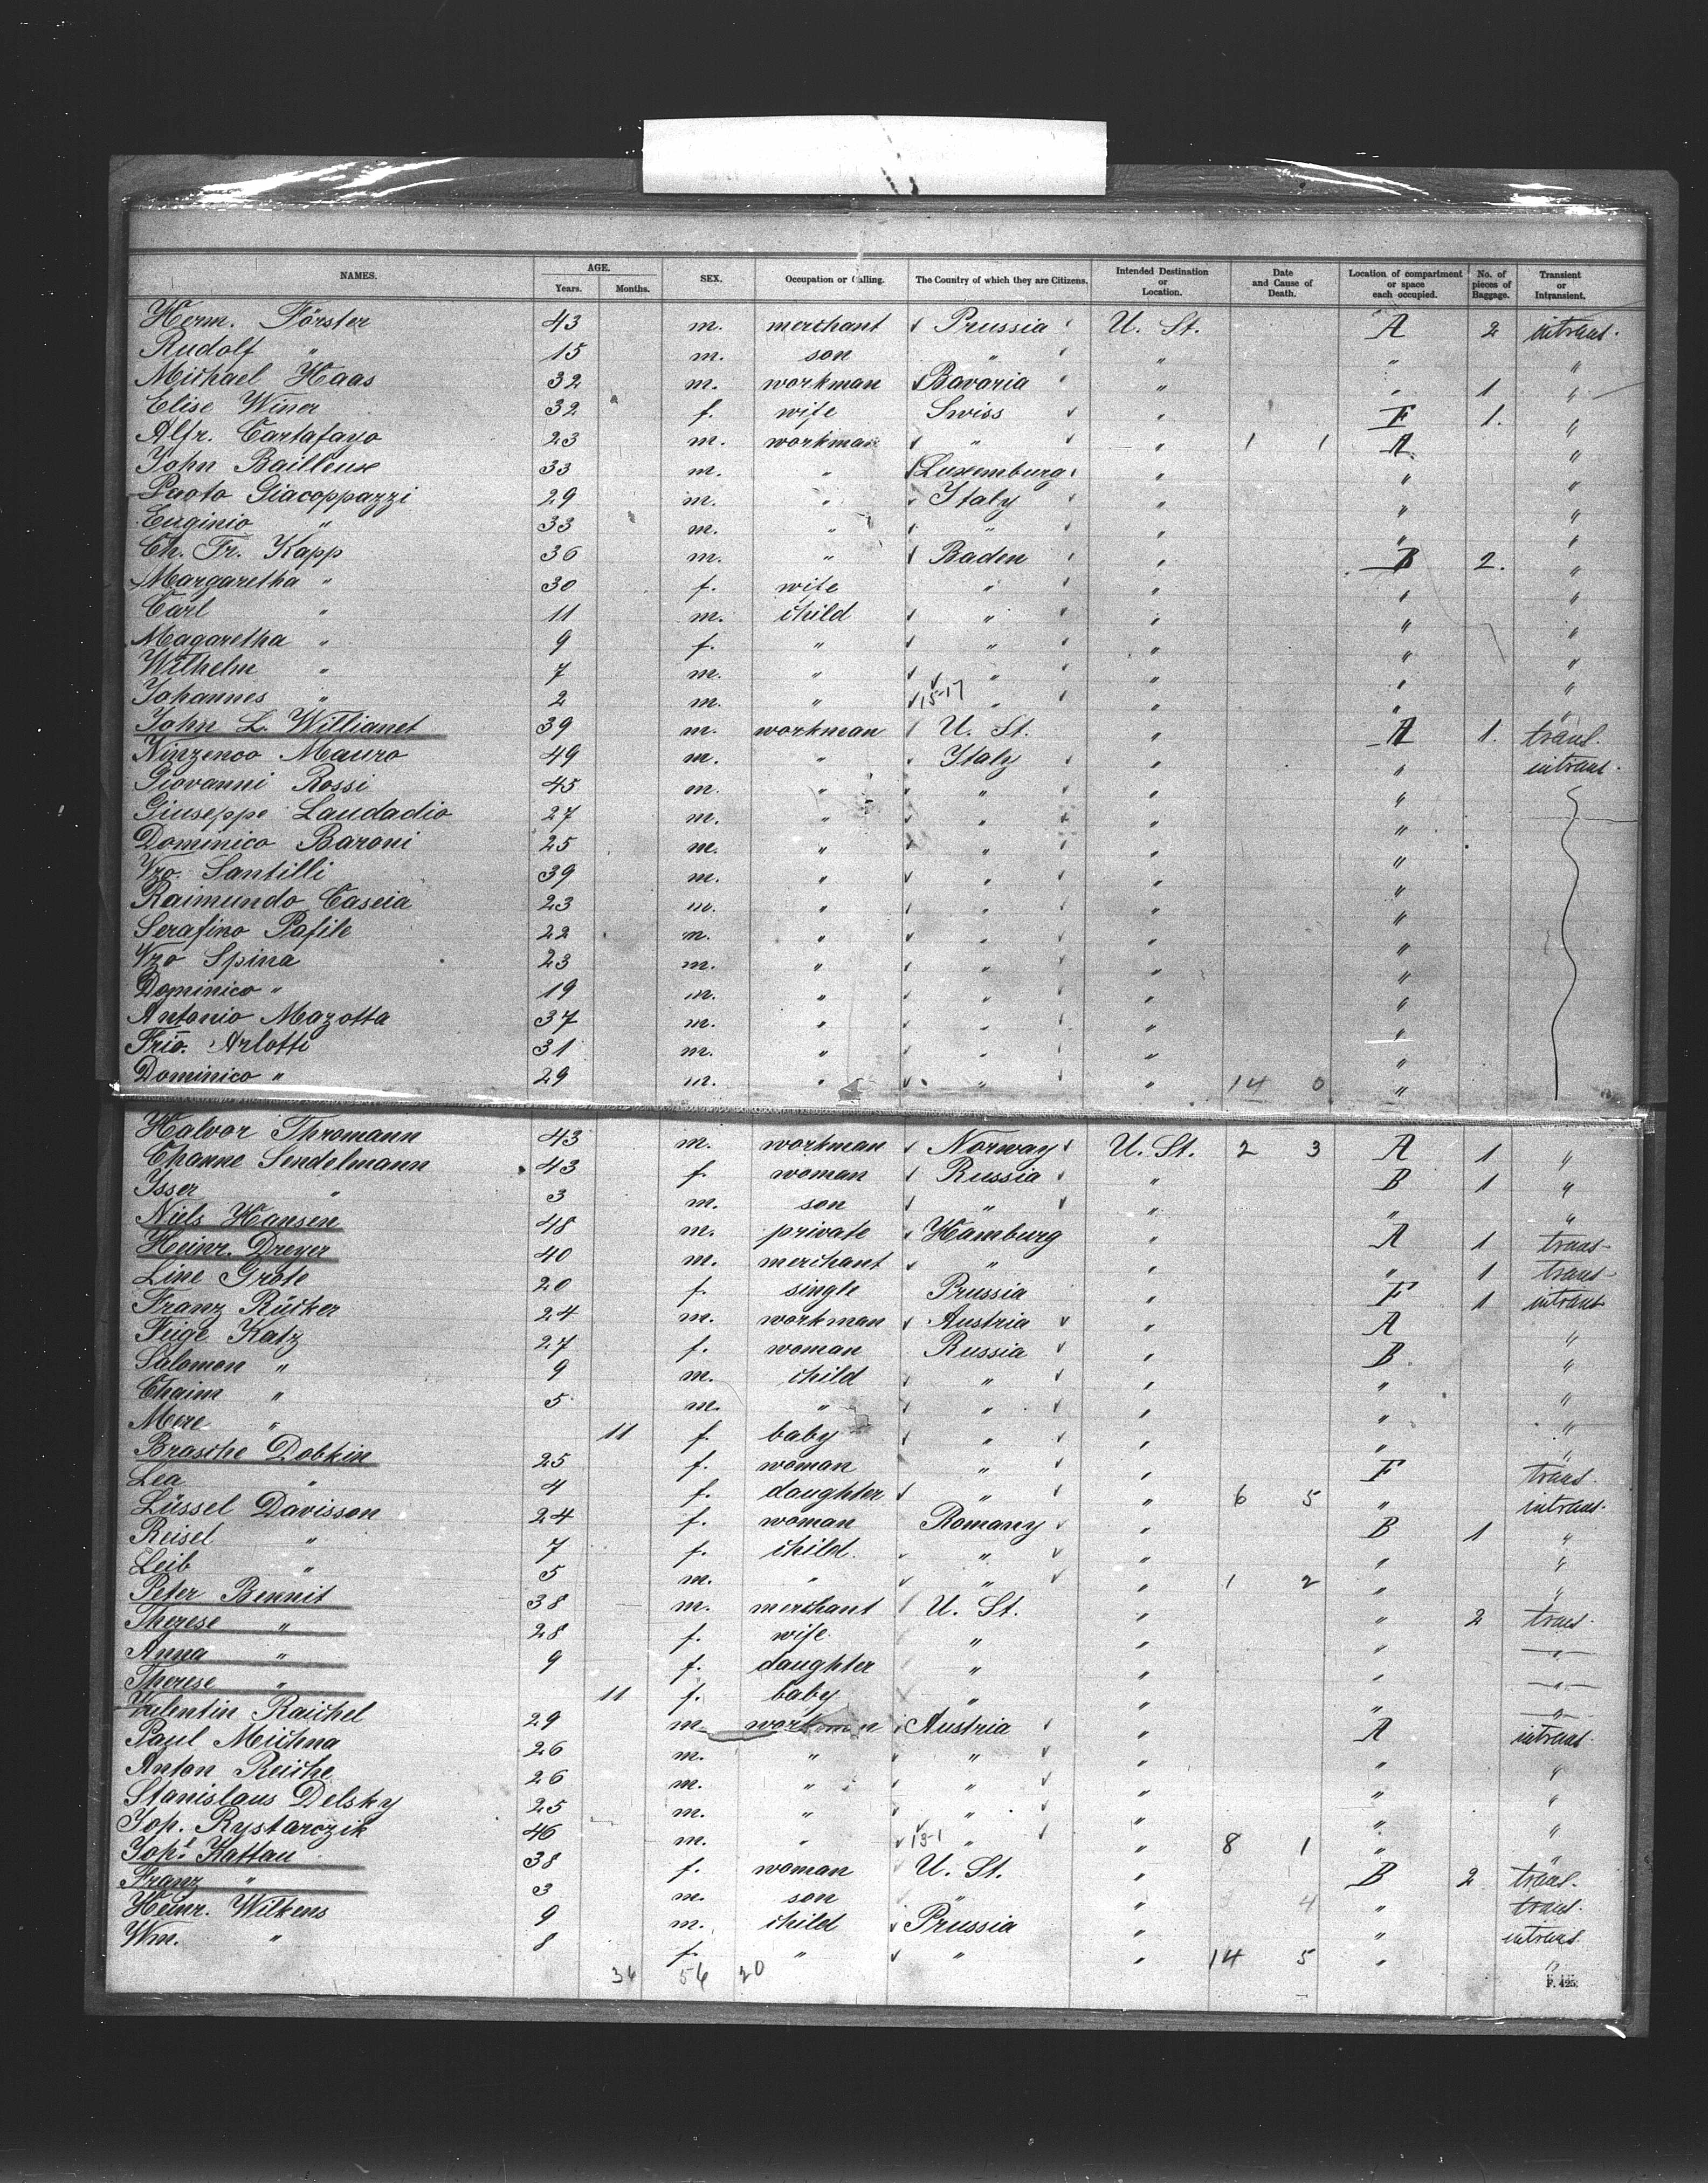 NAMES. AGE. Years. Months. SEX. Occupation or Calling. The Country of which they are Citizens. Intended Destination or Location. Date and Cause of Death. Location of compartment or space each occupied. No. of pieces of Baggage. Transient or Intransient.
Herm. Förster 43 m. merchant Prussia U. St. A 2 intrans.
Rudolf " 15 m. son " " " "
Michael Haas 32 m. workman Bavaria " " 1 "
Elise Winer 32 f. wife Swiss " F 1. "
Alfr. Cartafayo 23 m. workman " " 1 1 A "
John Bailleux 33 m. " Luxemburg " " "
Paoto Giacoppazzi 29 m. " Italy " " "
Euginio " 33 m. " " " " "
Ch. Fr. Kapp 36 m. " Baden " B 2. "
Margaretha " 30 f. wife " " " "
Carl " 11 m. child " " " "
Magaretha " 9 f. " " " " "
Wilhelm " 7 m. " " " " "
Johannes " 2 m. " 15-17 " " " "
John L. Willianet 39 m. workman U. St. " A 1. trans.
Ninzenco Mauro 49 m. " Italy " " intrans.
Giovanni Rossi 45 m. " " " "
Giuseppe Laudadio 27 m. " " " "
Dominico Baroni 25 m. " " " "
Vzo. Santilli 39 m. " " " "
Raimundo Caseia 23 m. " " " "
Serafino Pafile 22 m. " " " "
Vzo Spina 23 m. " " " "
Dominico " 19 m. " " " "
Antonio Mazotta 37 m. " " " "
Frio. Arlotti 31 m. " " " "
Dominico " 29 m. " " " 14 0 "
Halvor Thromann 43 m. workman Norway U. St. 2 3 A 1 "
Channe Sendelmann 43 f. woman Russia " B 1 "
Isser " 3 m. son " " " "
Niels Hansen 48 m. private Hamburg " A 1 trans
Heinr. Dreyer 40 m. merchant " " " 1 trans
Line Grote 20 f. single Prussia " F 1 intrans
Franz Rücker 24 m. workman Austria " A "
Feige Katz 27 f. woman Russia " B. "
Salomon " 9 m. child " " " "
Chaim " 5 m. " " " " "
Mere " 11 f. baby " " " "
Brasche Dobkin 25 f. woman " " F trans.
Lea " 4 f. daughter " " 6 5 " intrans.
Lüssel Davisson 24 f. woman Romany " B 1 "
Reisel " 7 f. child. " " " "
Leib " 5 m. " " " 1 2 " "
Peter Bennit 38 m. merchant U. St. " " 2 trans.
Therese " 28 f. wife " " " "
Anna " 9 f. daughter " " " "
Therese " 11 f. baby " " " "
Valentin Raichel 29 m. workman Austria " A intrans.
Paul Michna 26 m. " " " " "
Anton Reiche 26 m. " " " " "
Stanislaus Delsky 25 m. " " " " "
Joh. Rystarczik 46 m. " 13-1 " " 8 1 " "
Joh. Kattau 38 f. woman U. St. " B 2 trans.
Franz " 3 m. son " " 4 " trans.
Heinr. Wilkens 9 m. child Prussia " " intrans.
Wm. " 8 f. " " " 14 5 " "
36 56 20
F. 425.